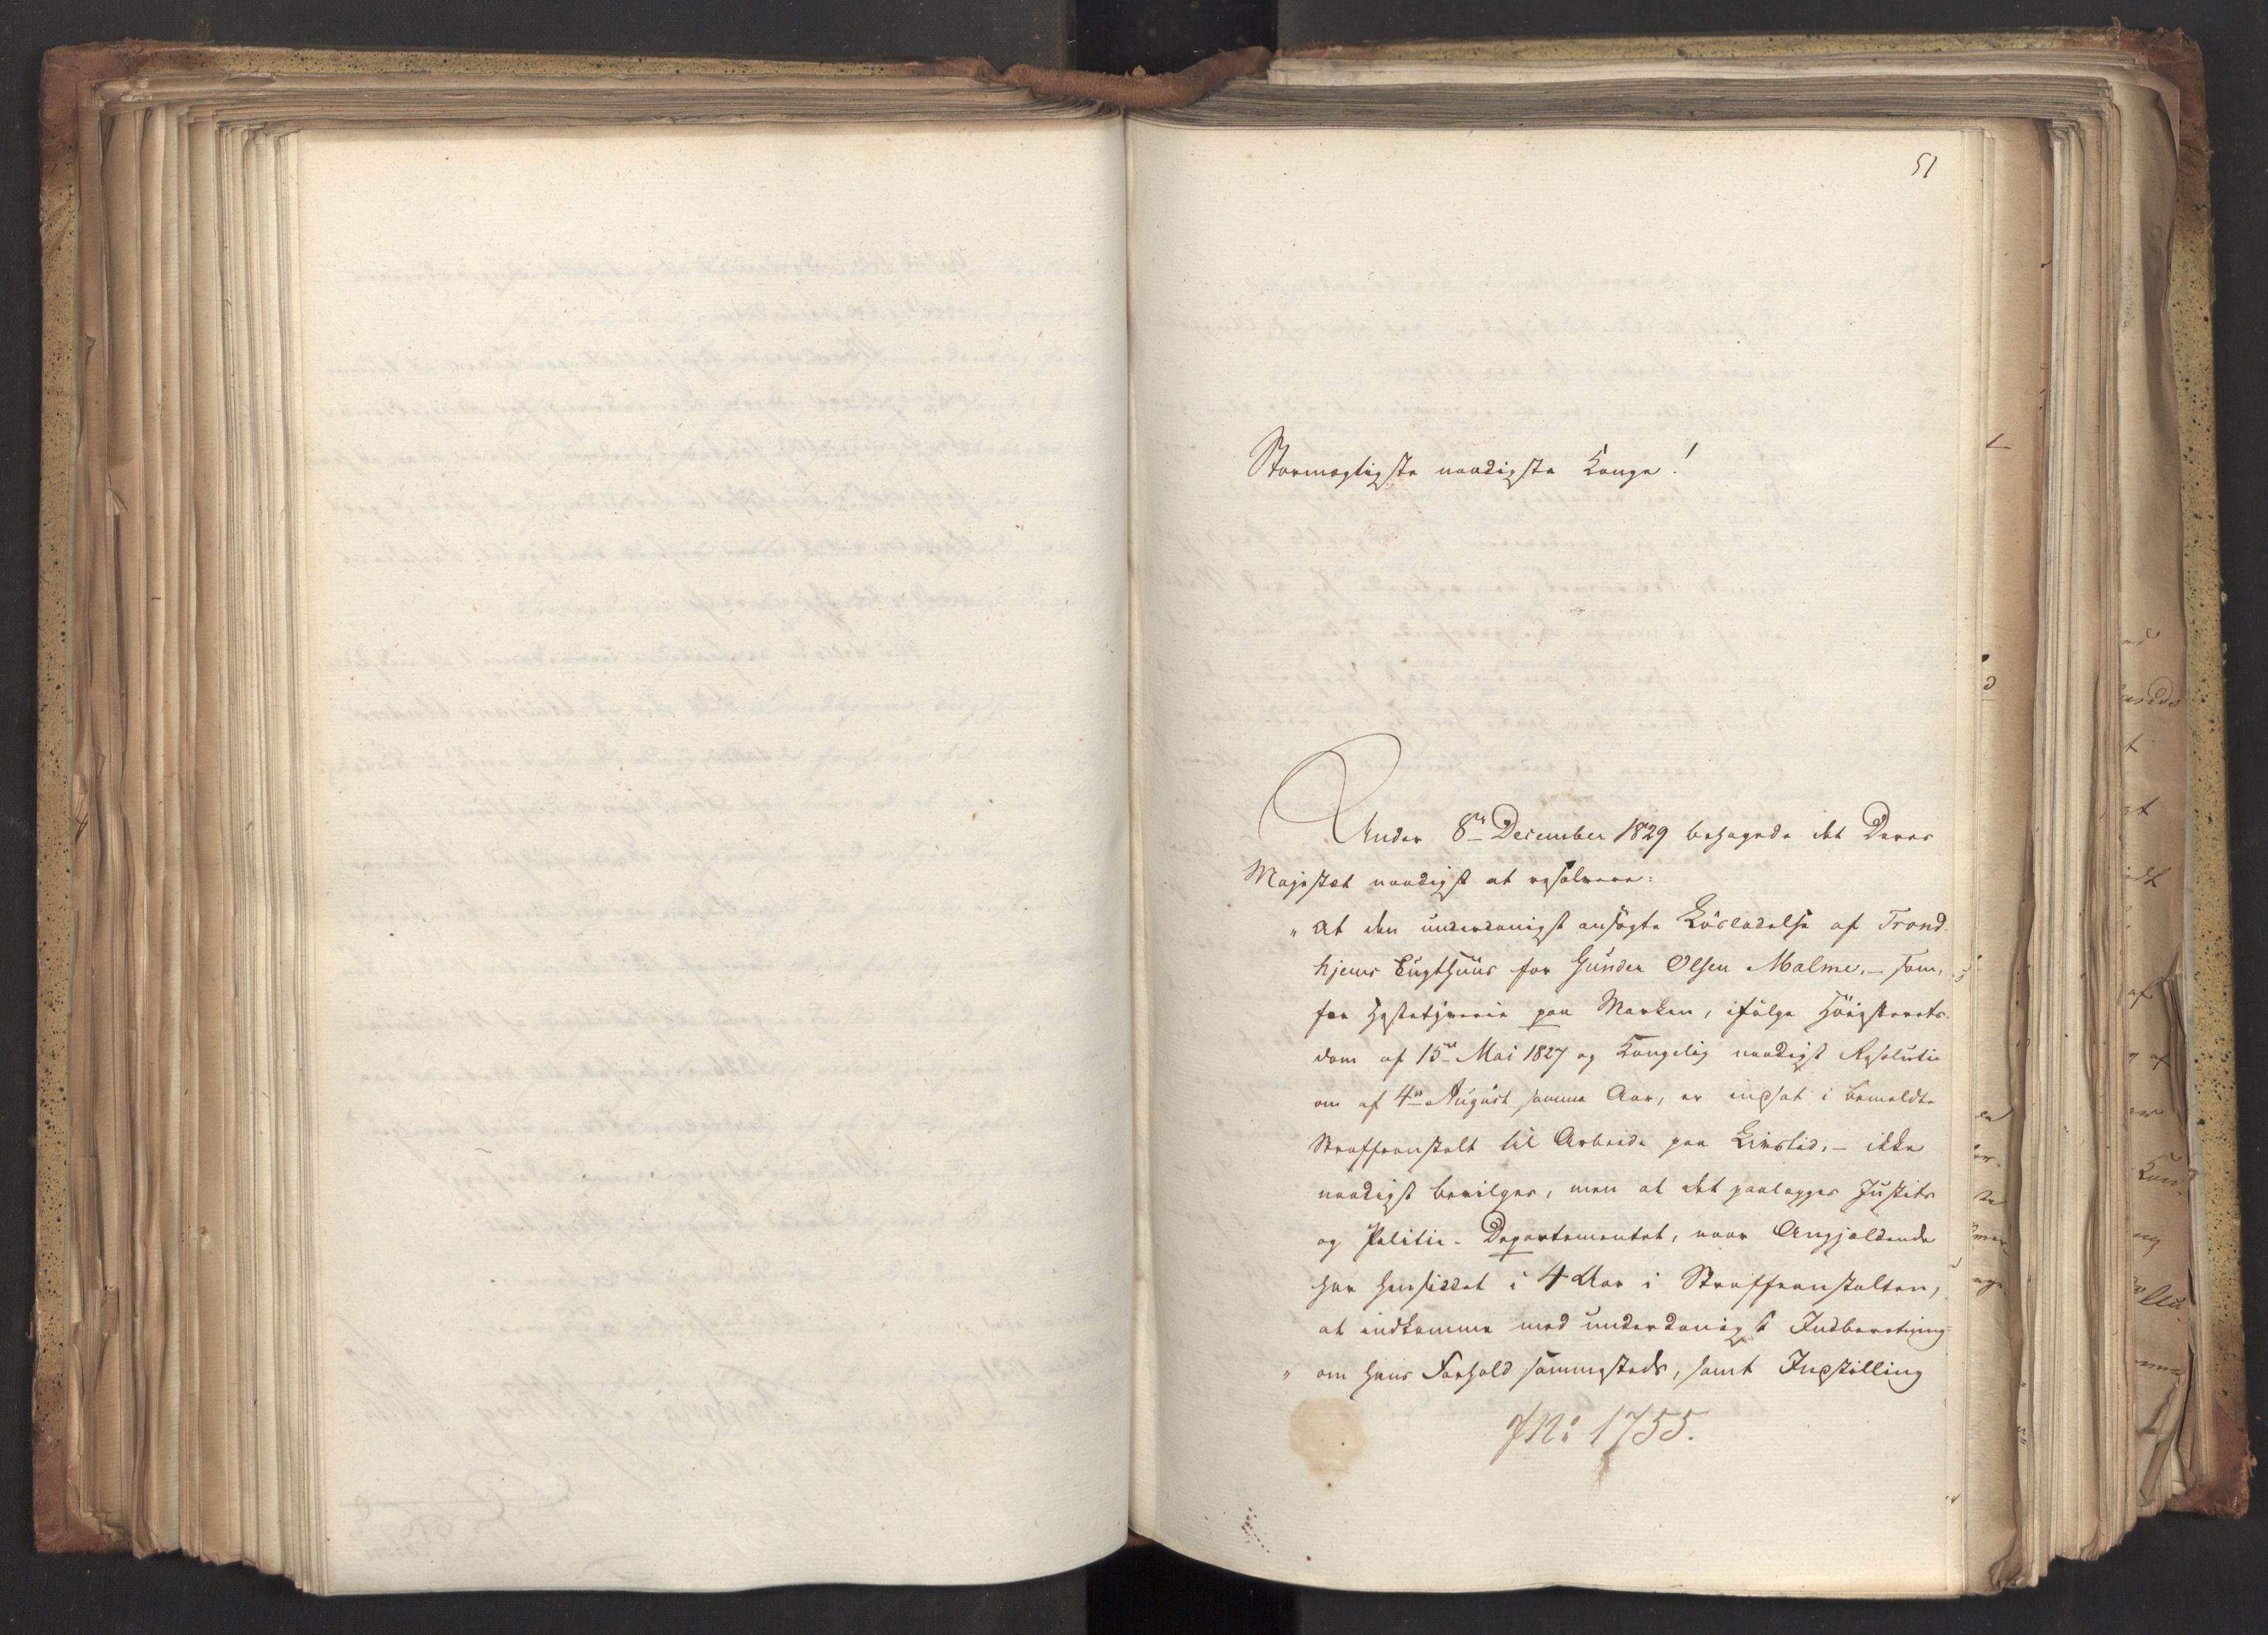 51
Stormægtigste naadigste Konge!
Under 8de December 1829 behagede det Deres
Majestæt naadigst at resolvere:
"at den underdanigst ansøgte Løsladelse af Trond-
hjems Tugthuus for Gunder Olsen Malme, – som,
for Hestetyverie paa Marken, ifølge Høiesterets-
dom af 15de Mai 1827 og Kongelig naadigst Resoluti-
on af 4de August samme Aar, er indsat i bemeldte
Straffeanstalt til Arbeide paa Livstid, – ikke
naadigst bevilges, men at det paalægges Justits
og Politie-Departementet, naar Angjældende
har hensiddet i 4 Aar i Straffeanstalten,
at indkomme med underdanigst Indberetning
" om hans Forhold sammesteds, samt Indstilling
JN: 1755.